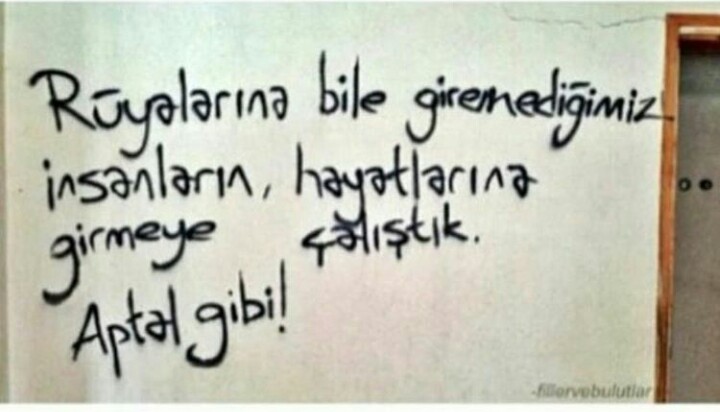 Rüyalarına bile giremediğimiz
insanların, hayatlarına
girmeye çalıştık.
Aptal gibi!
-fillervebulutlar